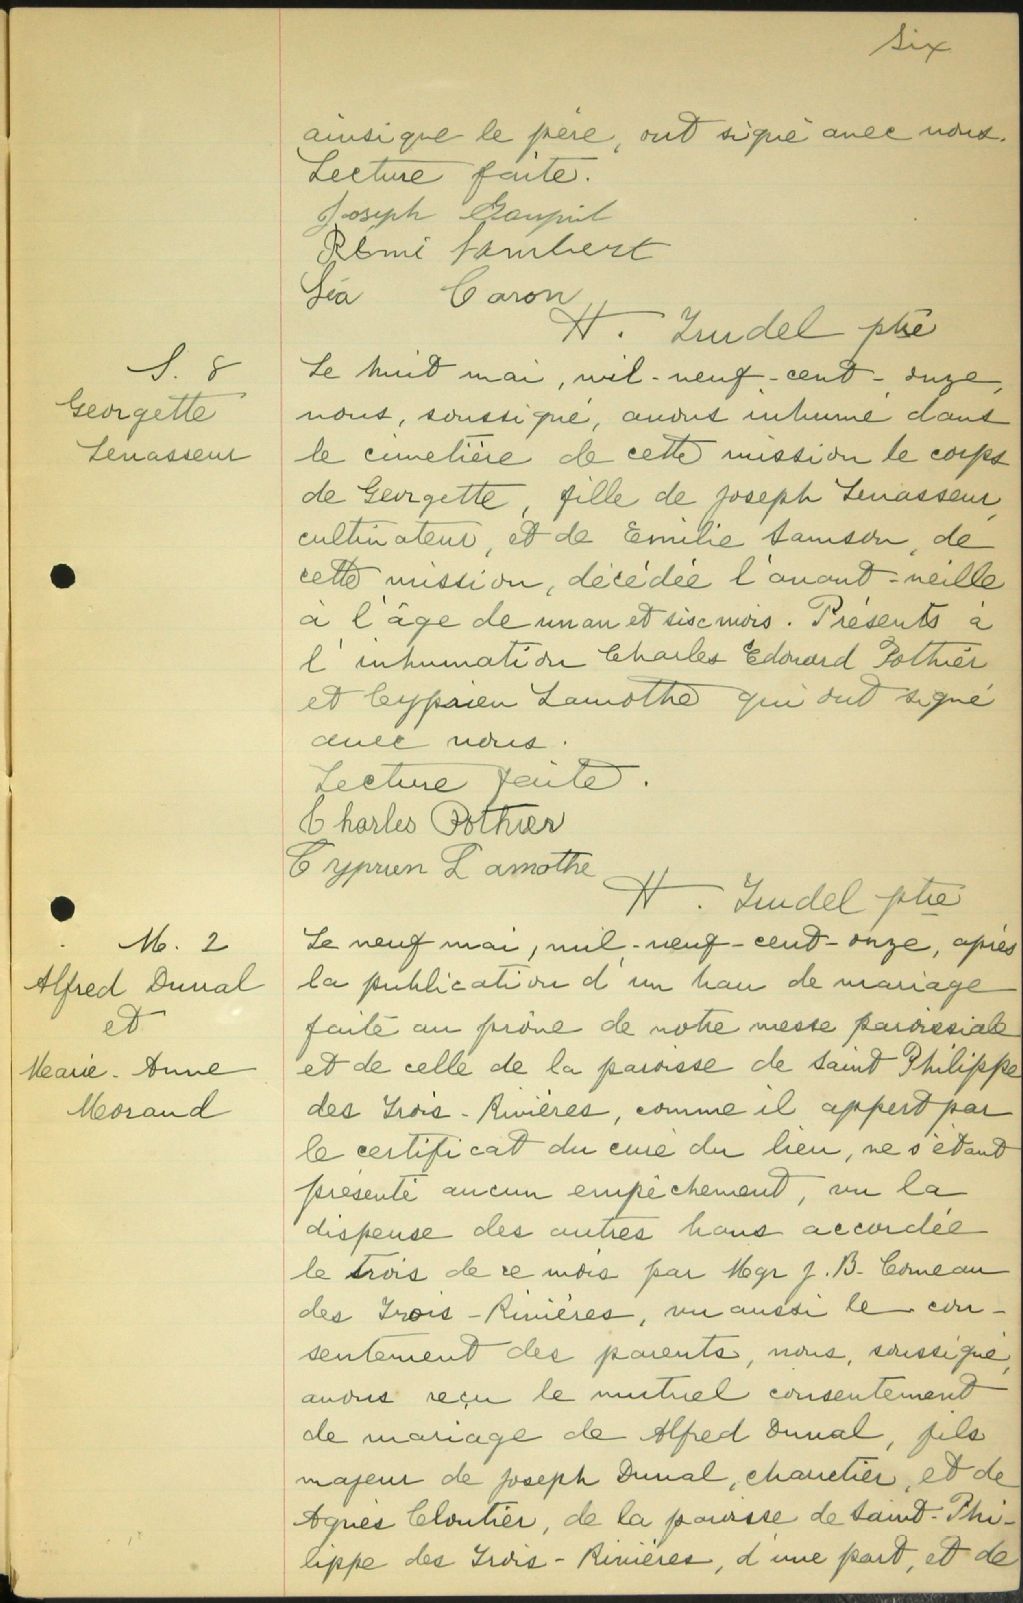 Six
ainsi que le père, ont signé avec nous.
Lecture faite.
Joseph Goupil
Rémi Lambert
Léa Caron
H. Trudel ptre
S. 8
Georgette
Levasseur
Le huit mai, mil-neuf-cent-onze,
nous, soussigné, avons inhumé dans
le cimetière de cette mission le corps
de Georgette, fille de Joseph Levasseur,
cultivateur, et de Emilie Samson, de
cette mission, décédée l'avant-veille
à l'âge de un an et six mois. Présents à
l'inhumation Charles Edouard Pothier
et Cyprien Lamothe qui ont signé
avec nous.
Lecture faite.
Charles Pothier
Cyprien Lamothe
H. Trudel ptre
M. 2
Alfred Duval
et
Marie-Anne
Morand
Le neuf mai, mil-neuf-cent-onze, après
la publication d'un ban de mariage
faite au prône de notre messe paroissiale
et de celle de la paroisse de Saint Philippe
des Trois-Rivières, comme il appert par
le certificat du curé du lieu, ne s'étant
présenté aucun empêchement, vu la
dispense des autres bans accordée
le trois de ce mois par Mgr J. B. Comeau
des Trois-Rivières, vu aussi le con-
sentement des parents, nous, soussigné,
avons reçu le mutuel consentement
de mariage de Alfred Duval, fils
majeur de Joseph Duval, charretier, et de
Agnès Cloutier, de la paroisse de Saint-Phi-
lippe des Trois-Rivières, d'une part, et de